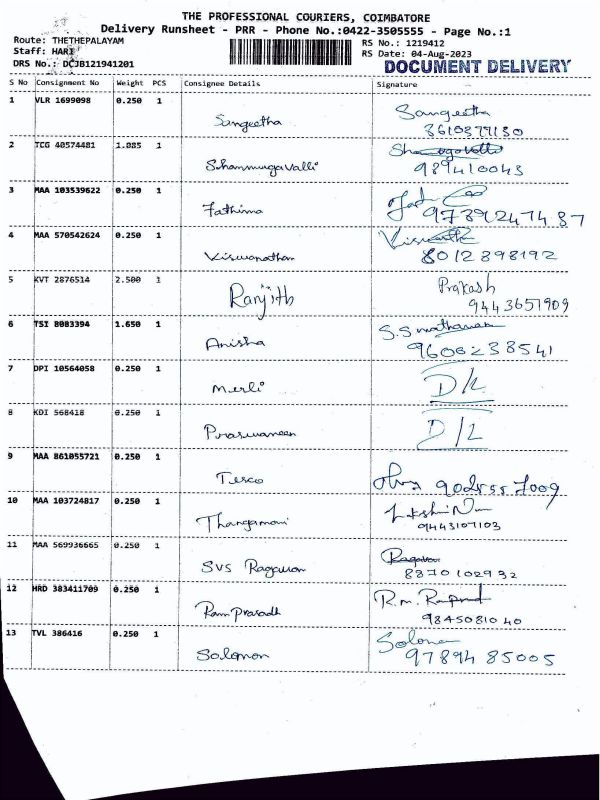 THE PROFESSIONAL COURIERS, COIMBATORE
Delivery Runsheet - PRR - Phone No.:0422-3505555 - Page No.:1
Route: THETHEPALAYAM
RS No.: 1219412
Staff: HARI
RS Date: 04-Aug-2023
DRS No.: DCJB121941201
DOCUMENT DELIVERY
S No Consignment No Weight PCS Consignee Details Signature
1 VLR 1699098 0.250 1 Sangeetha Sangeetha
8610377130
2 TCG 40574481 1.085 1 Shanmugavalli
989410043
3 MAA 103539622 0.250 1 Fathima
9739247487
4 MAA 570542624 0.250 1 Viswanathan
8012898192
5 KVT 2876514 2.500 1 Ranjith Prakash
9443657909
6 TSI 8083394 1.650 1 Anisha S.Swathanan
9606238541
7 DPI 10564058 0.250 1 Merli D/L
8 KDI 568418 0.250 1 Praswaneen D/L
9 MAA 861055721 0.250 1 Tesco
10 MAA 103724817 0.250 1 Thangamani
9443107103
11 MAA 569936665 0.250 1 SVS Ragavan
8870102932
12 HRD 383411709 0.250 1 Ram Prasadh
9845081040
13 TVL 386416 0.250 1 Solomon
9789485005